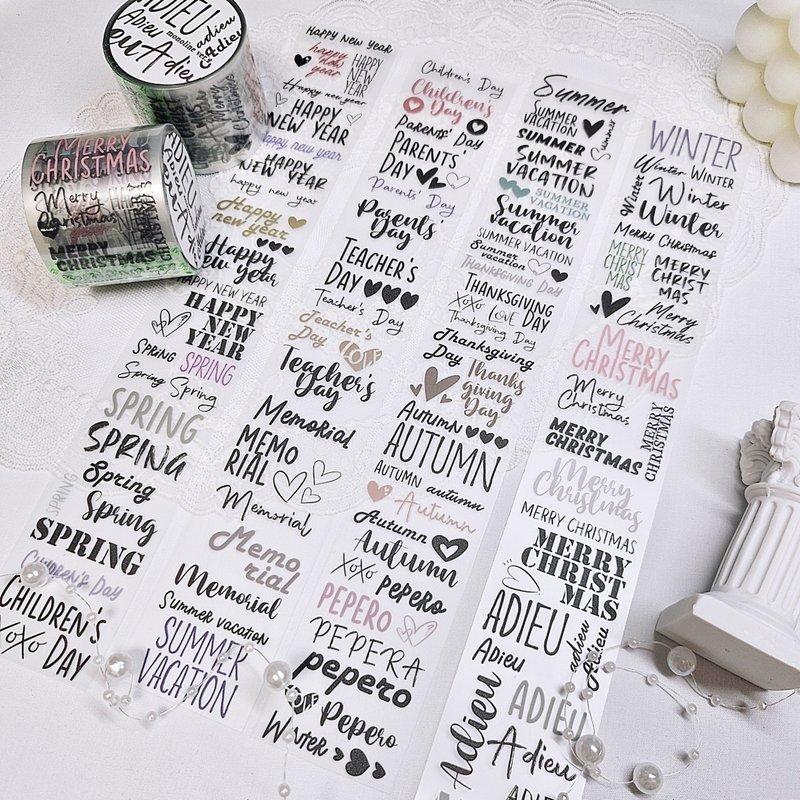 ADIEU
adieu
Adieu
MERRY
CHRISTMAS
Merry
Christmas
MERRY
CHRISTMAS
Happy New Year
happy
new
year
HAPPY
NEW
YEAR
Happy new year
HAPPY
NEW YEAR
happy new year
Happy
New Year
happy new year
Happy
new year
Happy
new year
HAPPY NEW YEAR
HAPPY
NEW
YEAR
Spring
SPRING
Spring Spring
SPRING
SPRING
Spring
SPRING
Spring
SPRING
Children's Day
CHILDREN'S
XOXO DAY
Children's Day
Children's
Day
Parents' Day
PARENTS
DAY
Parents' Day
Parents'
Day
TEACHER'S
DAY
Teacher's Day
Teacher's
Day LOVE
Teacher's
Day
Memorial
MEMO
RIAL
Memorial
Memo
rial
Memorial
Summer vacation
SUMMER
VACATION
Summer
SUMMER
VACATION
Summer
SUMMER
SUMMER
VACATION
SUMMER
VACATION
Summer
vacation
SUMMER VACATION
Summer
vacation
THANKSGIVING DAY
THANKSGIVING
XOXO LOVE DAY
Thanksgiving Day
Thanksgiving
Day
Thanks
giving
Day
AUTUMN
AUTUMN
AUTUMN autumn
Autumn
Autumn
Autumn
XOXO PEPERO
PEPERO
PEPERA
pepero
LOVE Pepero
Winter
WINTER
Winter WINTER
Winter
Winter
Winter
Merry Christmas
MERRY
CHRIST
MAS
MERRY
CHRIST
MAS
Merry
Christmas
MERRY
CHRISTMAS
Merry
Christmas
MERRY
CHRISTMAS
MERRY
CHRISTMAS
Merry
Christmas
MERRY CHRISTMAS
MERRY
CHRIST
MAS
ADIEU
adieu
Adieu
Adieu
Adieu
ADIEU
Adieu
Adieu